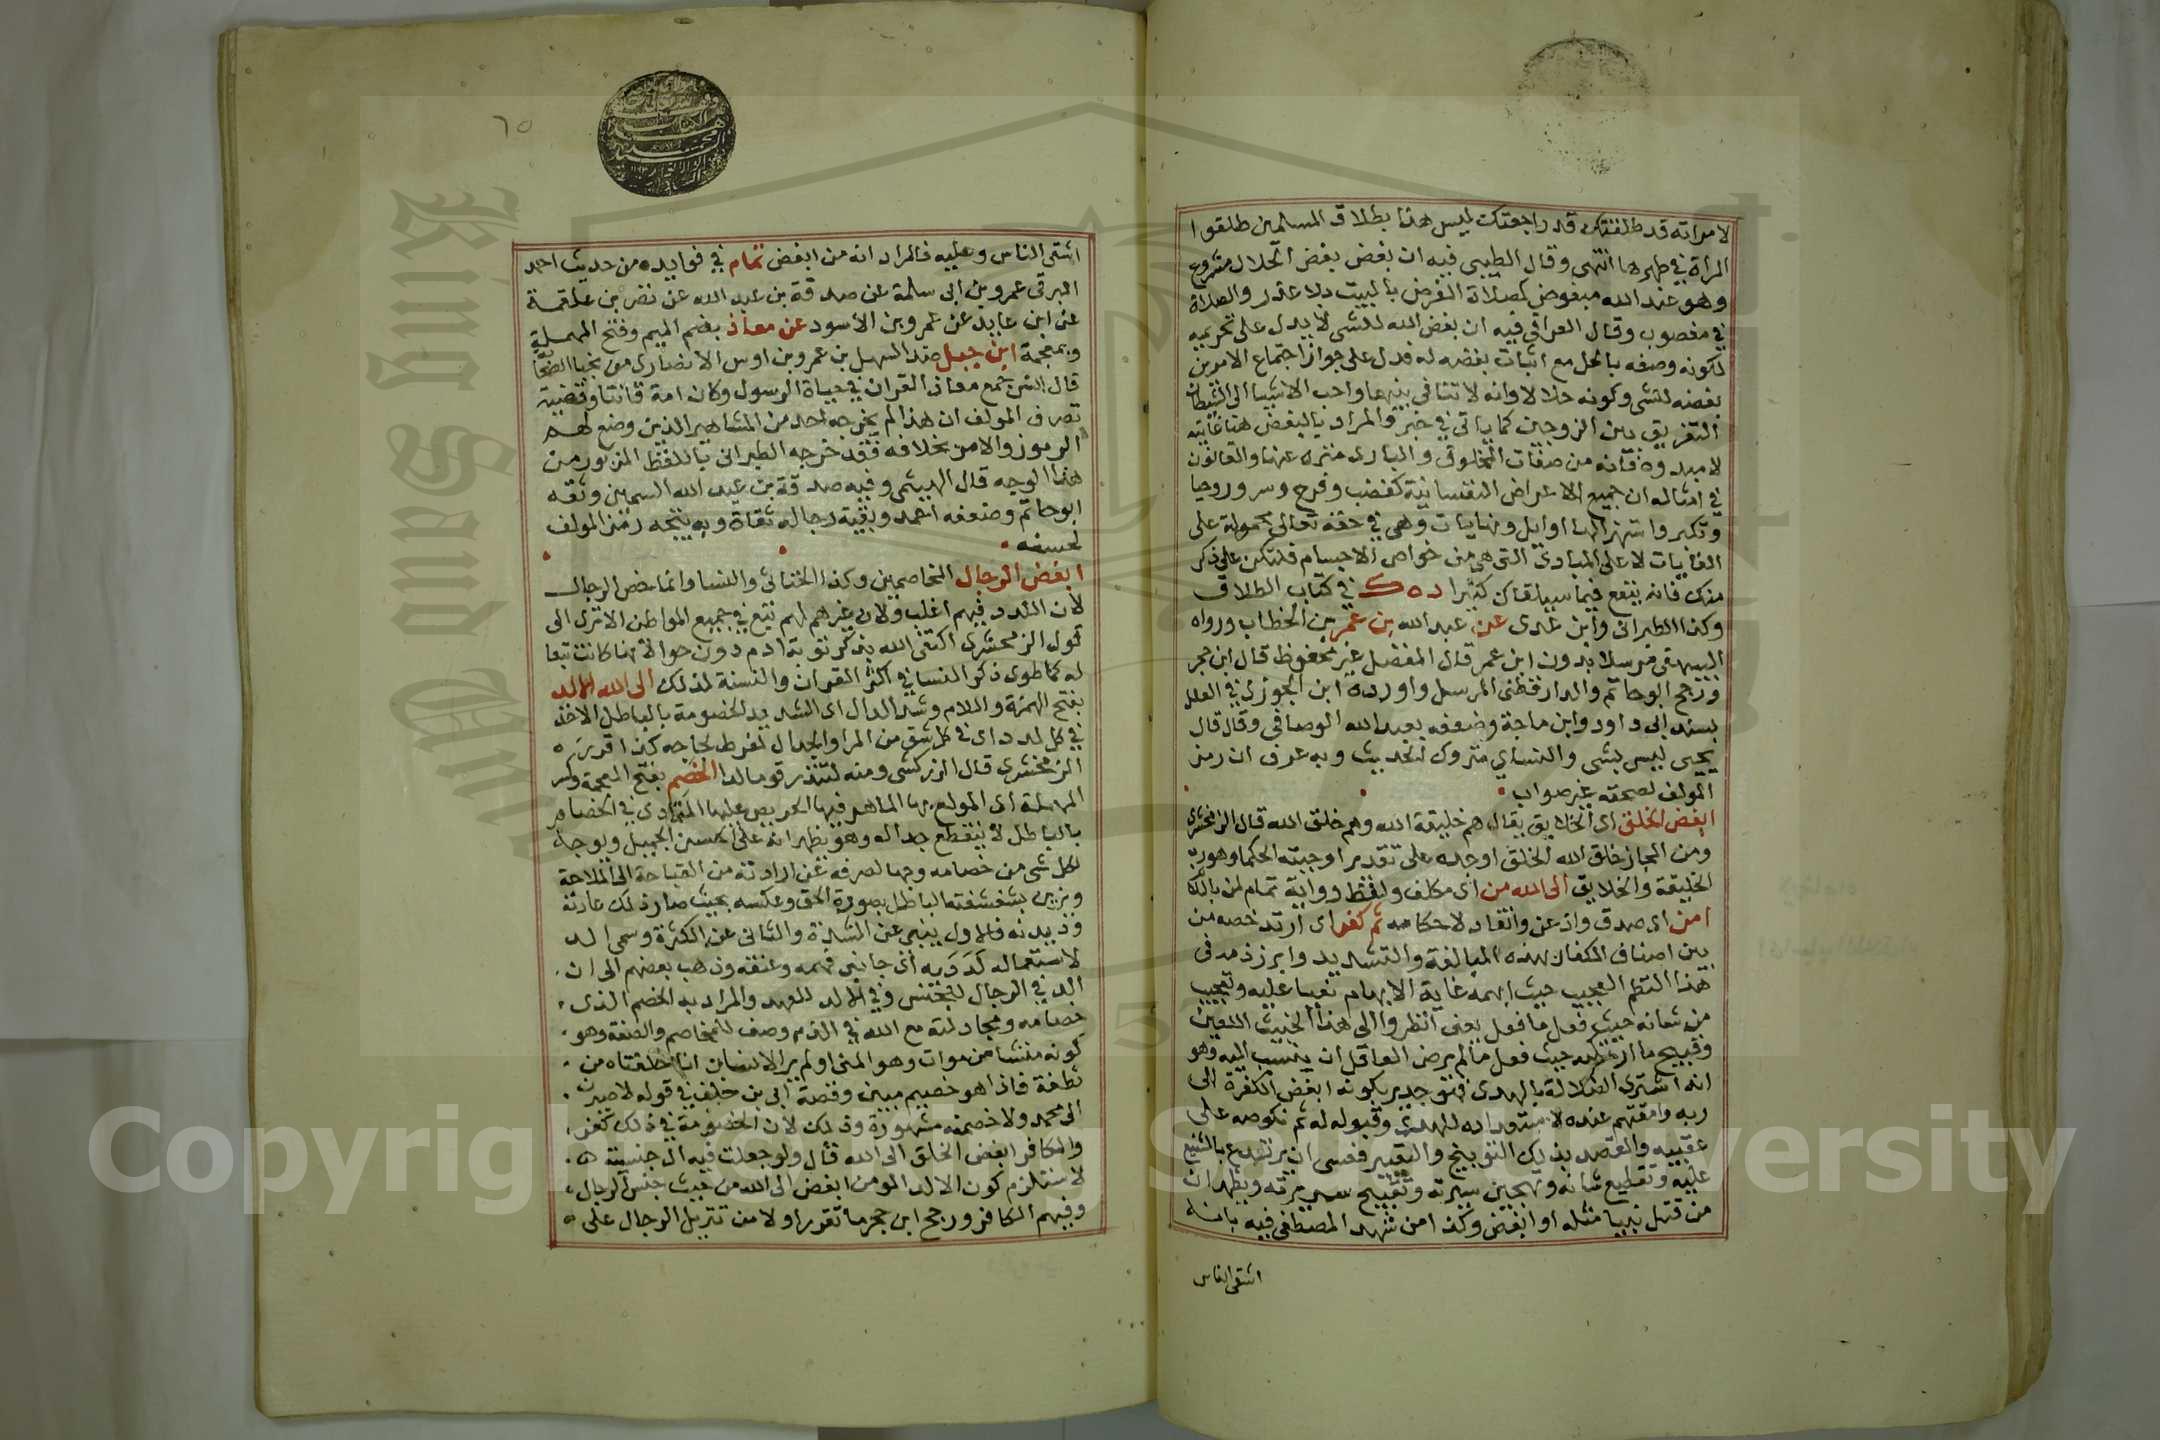 لامراته قد طلقتك قد راجعتك ليس هذا بطلاق المسلمين طلقوا
المراة في طهرها انتهى وقال الطيبي فيه ان بغض بغض الحلال مشروع
وهو عند الله مبغوض كصلاة الفرض بالبيت بلا عذر والصلاة
في مغصوب وقال العراقي فيه ان بغض الله للشى لا يدل على تحريمه
لكونه وصفه بالحل مع اثبات بغضه له فدل على جواز اجتماع الامرين
بغضه للشى وكونه حلالا وانه لا تنافى بينهما واحب الاشيا الى الشيطان
التفريق بين الزوجين كما ياتى في خبر والمراد بالبغض هنا غايته
لا مبدوه فانه من صفات المخلوق والبارى منزه عنها والقانون
في امثاله ان جميع الاعراض النفسانية كغضب وفرح وسرور وحيا
وتكبر واستهزا لها اوايل ونهايات وهي في حقه تعالى محمولة على
الغايات لا على المبادى التى هي من خواص الاجسام فلتكن على ذكر
منك فانه ينفع فيما سيلقاك كثيرا د ه ك في كتاب الطلاق
وكذا الطبرانى وابن عدى عن عبد الله بن عمر بن الخطاب ورواه
البيهقى مرسلا بدون ابن عمر قال المفضل غير محفوظ قال ابن حجر
ورجح ابو حاتم والدارقطنى المرسل واورده ابن الجوزى في العلل
بسند ابى داود وابن ماجة وضعفه بعبد الله الوصافى وقال قال
يحيى ليس بشى والنساي متروك الحديث وبه عرف ان رمز
المولف لصحته غير صواب
ابغض الخلق اى الخلايق يقال هم خليقة الله وهم خلق الله قال الزمخشرى
ومن المجاز خلق الله الخلق اوجده على تقدير اوجبته الحكمة وهو رب
الخليقة والخلايق الى الله من اى مكلف ولفظ رواية تمام لمن باللام
امن اى صدق واذعن وانقاد لاحكامه ثم كفر اى ارتد خصه من
بين اصناف الكفار بهذه المبالغة والتشديد وابرز ذمه في
هذا النظم العجيب حيث ابهمه غاية الابهام نعيا عليه وتعجيب
من شانه حيث فعل ما فعل يعنى انظروا الى هذا الخبيث اللعين
وقبيح ما ارتكبه حيث فعل ما لم يرض العاقل ان ينسب اليه وهو
انه اشترى الضلالة بالهدى فهو جدير بكونه ابغض الكفرة الى
ربه وامقتهم عنده لاستعداده للهدى وقبوله له ثم نكوصه على
عقبيه والقصد بذلك التوبيخ والتعيير فعسى ان يرتدع بالتشنيع
عليه وتفظيع شانه وتهجين سيرته وتقبيح سريرته ويظهر ان
من قتل نبيا مثله او ابغض وكذا من شهد المصطفى فيه بانه
اشقى الناس
٦٥
اشقى الناس وعليه فالمراد انه من ابغض تمام في فوايده من حديث احمد
البرقى عمرو بن ابى سلمة عن صدقة بن عبد الله عن نصر بن علقمة
عن ابن عايذ عن عمرو بن الاسود عن معاذ بضم الميم وفتح المهملة
وبمعجمة ابن جبل ضد السهل بن عمرو بن اوس الانصارى من نجبا الصحا
قال انس جمع معاذ القران في حياة الرسول وكان امة قانتا وقضية
تصرف المولف ان هذا لم يخرجه احد من المشاهير الذين وضع لهم
الرموز والامر بخلافه فقد خرجه الطبرانى باللفظ المزبور من
هذا الوجه قال الهيثمى وفيه صدقة بن عبد الله السمين وثقه
ابو حاتم وضعفه احمد وبقية رجاله ثقاة وبه يتجه رمز المولف
لحسنه
ابغض الرجال المخاصمين وكذا الخناثى والنسا وانما خص الرجال
لان اللدد فيهم اغلب ولان غيرهم لهم تبع في جميع المواطن الا ترى الى
قول الزمخشرى اكتفى الله بذكر توبة ادم دون حوا لانها كانت تبعا
له كما طوى ذكر النسا في اكثر القران والسنة لذلك الى الله الالد
بفتح الهمزة واللام وشد الدال اى الشديد الخصومة بالباطل الاخذ
في كل لدد اى في كل شق من المرا والجدال لفرط لجاجه كذا قرره
الزمخشرى قال الزركشى ومنه لتنذر قوما لدا الخصم بفتح المعجمة وكسر
المهملة اى المولع بها الماهر فيها الحريص عليها المتمادى في الخصام
بالباطل لا ينقطع جداله وهو يظهر انه على الحسن الجميل ويوجه
لكل شى من خصامه وجها لصرفه عن ارادته من القباحة الى الملاحة
ويزين بشقشقته الباطل بصورة الحق وعكسه بحيث صار ذلك عادته
وديدنه فالاول ينبى عن الشدة والثانى عن الكثرة وسمى الد
لاستعماله لديديه اى جانبى فمه وعنقه وذهب بعضهم الى ان
الد في الرجال للجنس وفي الالد للعهد والمراد به الخصم الذى
خصامه ومجادلته مع الله في الذم وصف للمخاصم والصفة وهو
كونه منشا من موات وهو المنى اولم ير الانسان انا خلقناه من
نطفة فاذا هو خصيم مبين وقصة ابى بن خلف في قوله لاصيرن
الى محمد ولاخصمنه مشهورة وذلك لان الخصومة في ذلك كفر
والكافر ابغض الخلق الى الله قال ولو جعلت فيه ال جنسية
لاستلزم كون الالد المومن ابغض الى الله من حيث جنس الرجال
وفيهم الكافر ورجح ابن حجر ما تقرر اولا من تنزيل الرجال على
King Saud University
Copyright © King Saud University